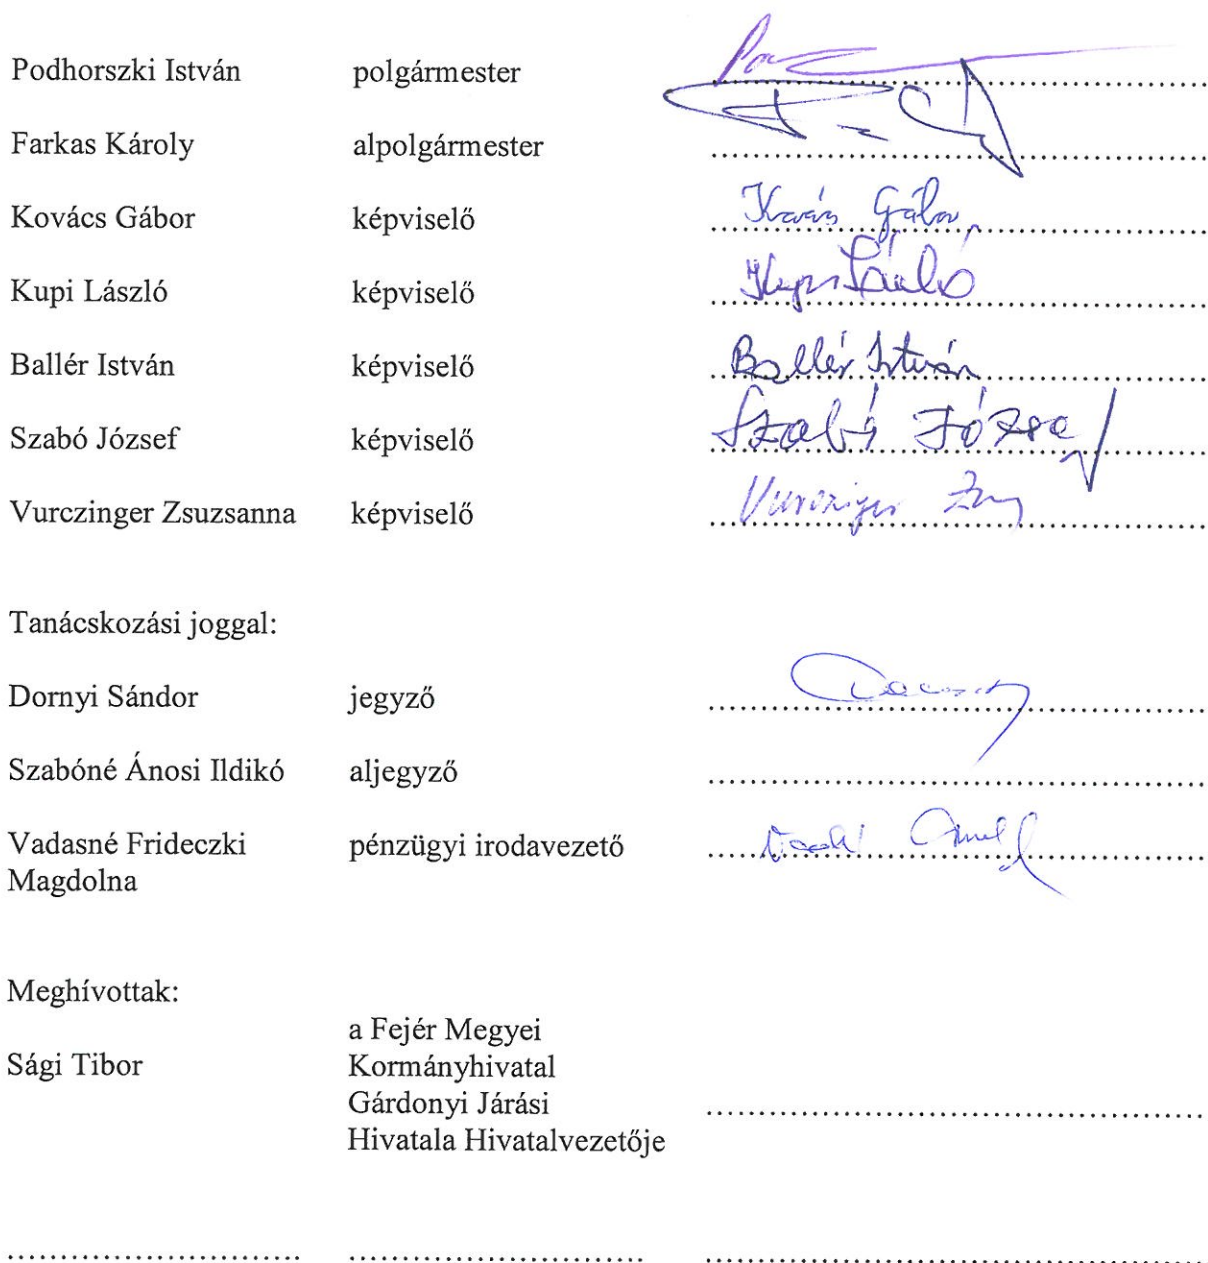 Podhorszki István polgármester
Farkas Károly alpolgármester
Kovács Gábor képviselő Kovács Gábor
Kupi László képviselő Kupi László
Ballér István képviselő Ballér István
Szabó József képviselő Szabó József
Vurczinger Zsuzsanna képviselő Vurczinger
Tanácskozási joggal:
Dornyi Sándor jegyző
Szabóné Ánosi Ildikó aljegyző
Vadasné Frideczki pénzügyi irodavezető
Magdolna
Meghívottak:
a Fejér Megyei
Sági Tibor Kormányhivatal
Gárdonyi Járási
Hivatala Hivatalvezetője